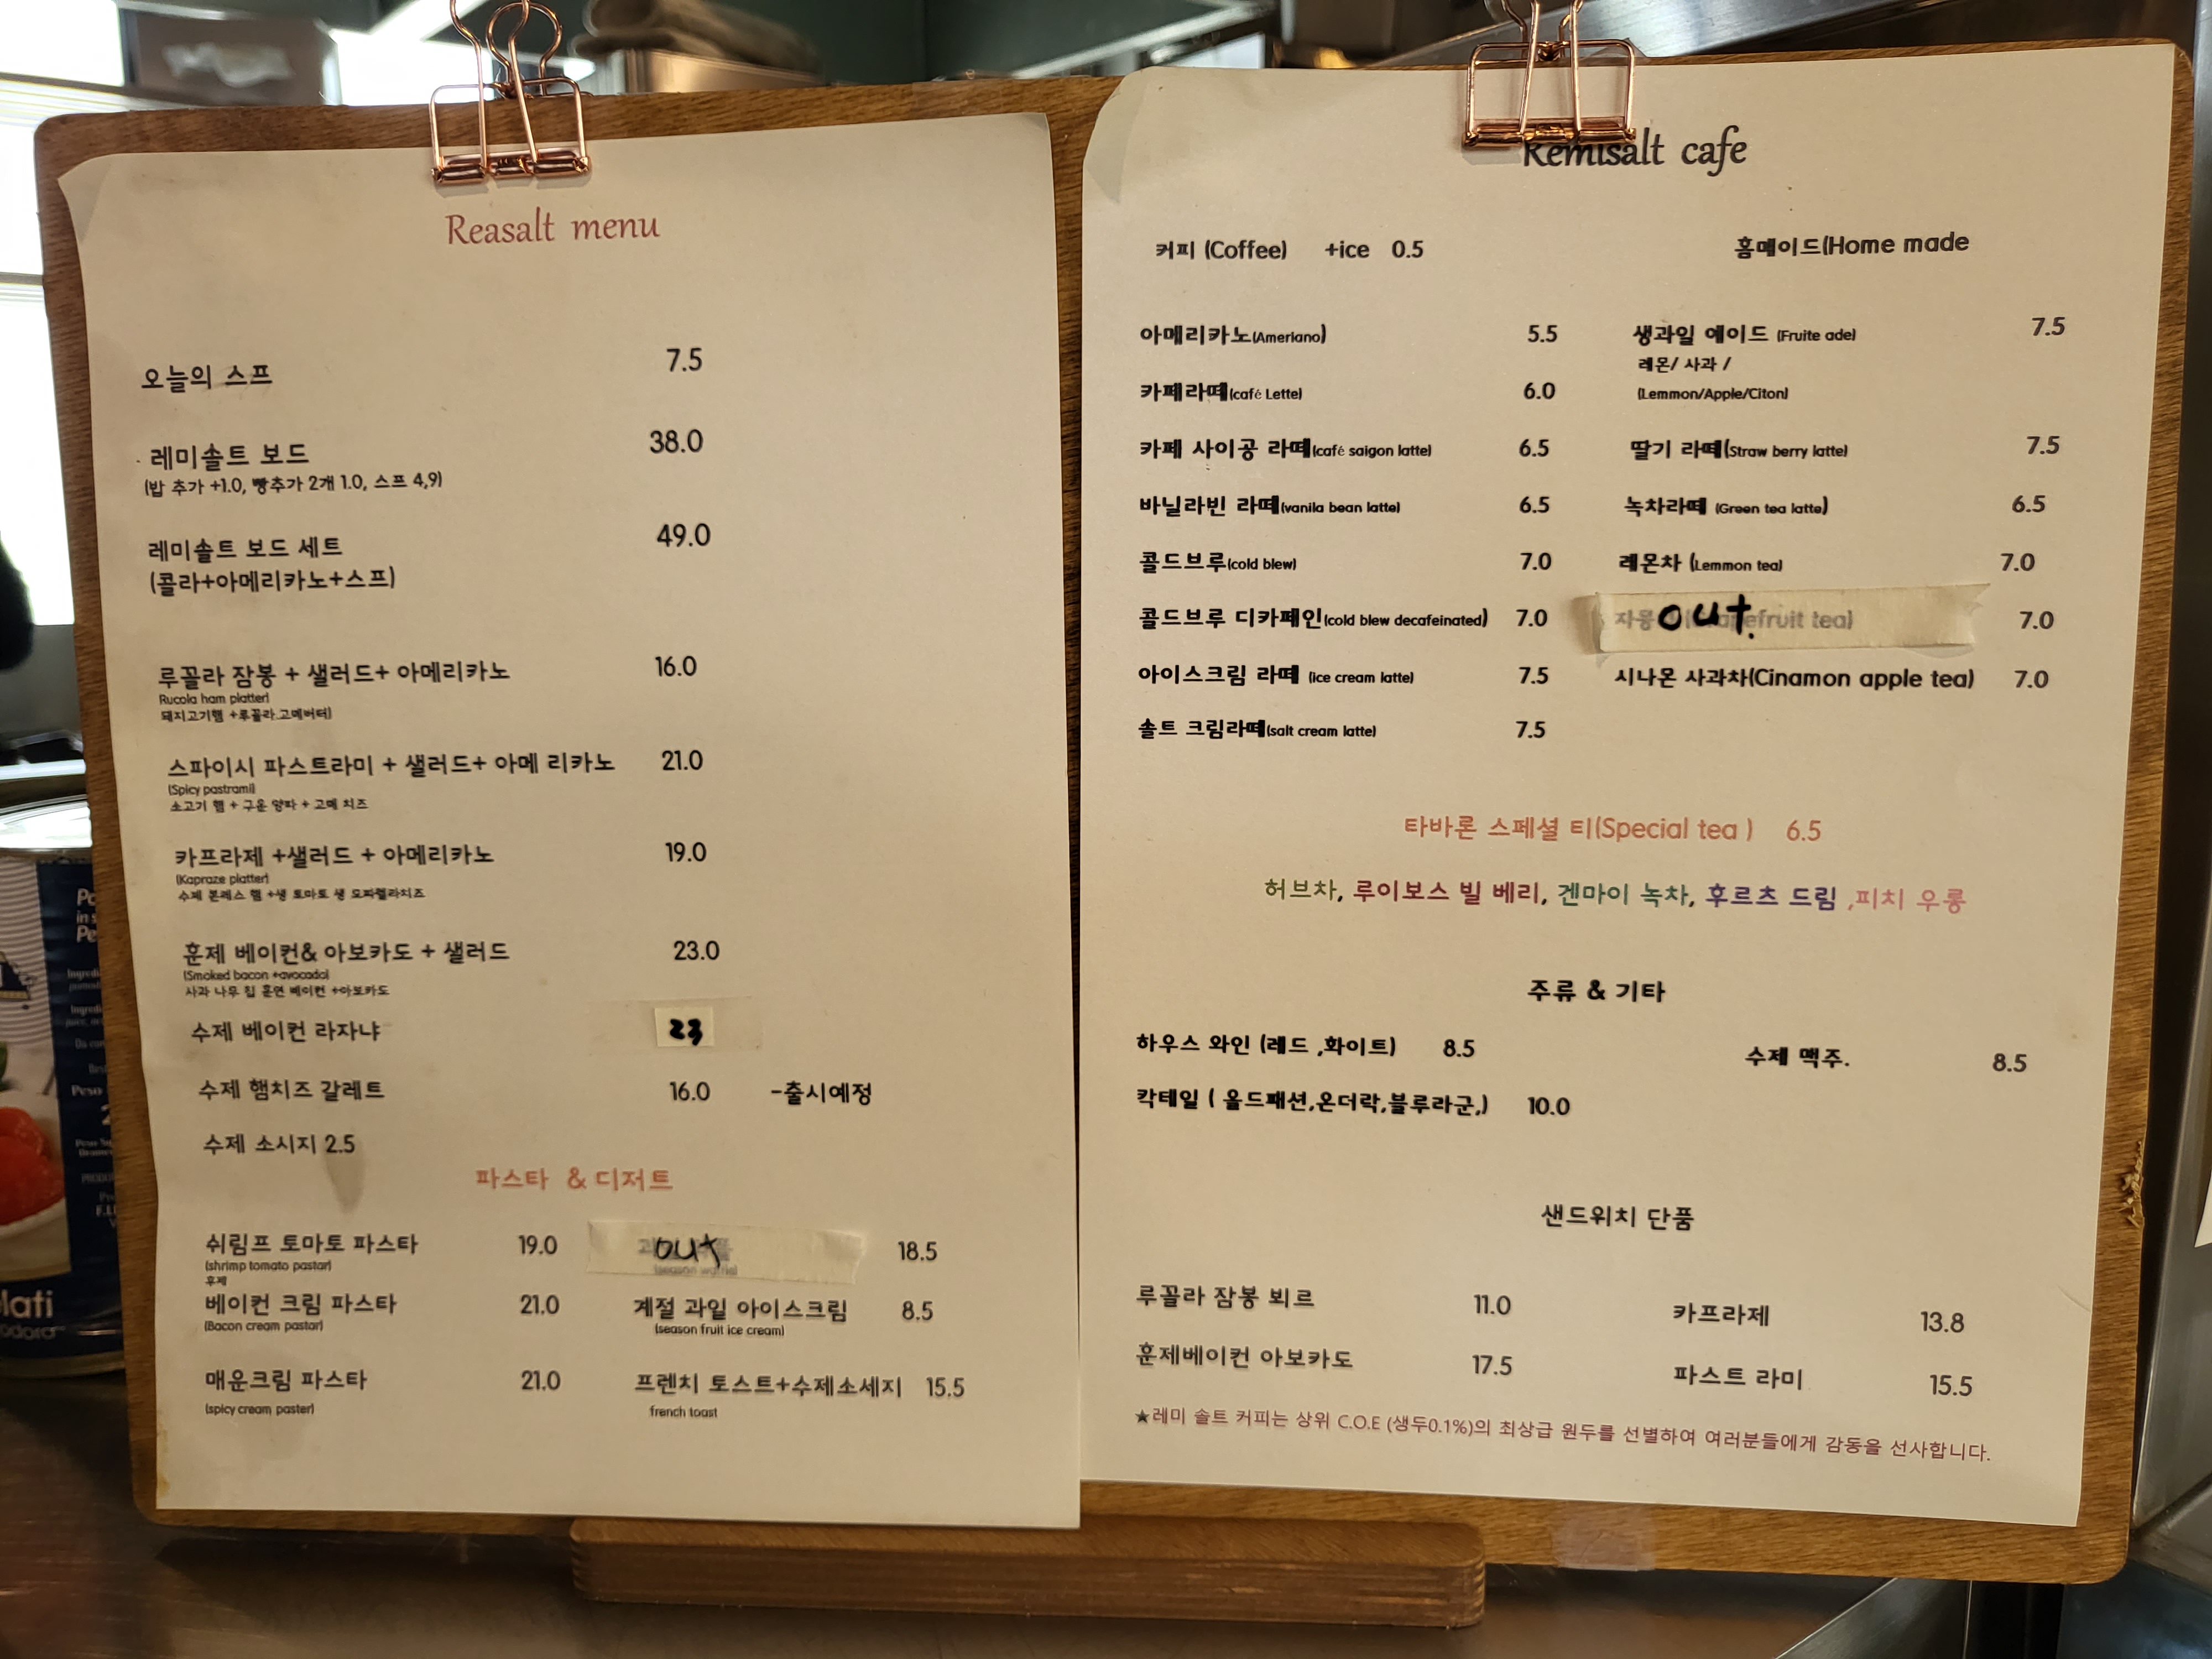 Reasalt menu
오늘의 스프 7.5
레미솔트 보드 38.0
(밥 추가 +1.0, 빵추가 2개 1.0, 스프 4,9)
레미솔트 보드 세트 49.0
(콜라+아메리카노+스프)
루꼴라 잠봉 + 샐러드+ 아메리카노 16.0
Rucola ham platter)
돼지고기햄 +루꼴라.고메버터)
스파이시 파스트라미 + 샐러드+ 아메 리카노 21.0
(Spicy pastrami)
소고기 햄 + 구운 양파 + 고메 치즈
카프라제 +샐러드 + 아메리카노 19.0
(Kapraze platter)
수제 본레스 햄 +생 토마토 생 모짜렐라치즈
훈제 베이컨& 아보카도 + 샐러드 23.0
(Smoked bacon +avocado)
사과 나무 칩 훈연 베이컨 +아보카도
수제 베이컨 라자냐 23
수제 햄치즈 갈레트 16.0 -출시예정
수제 소시지 2.5
파스타 & 디저트
쉬림프 토마토 파스타 19.0
(shrimp tomato pastar)
후제
베이컨 크림 파스타 21.0
(Bacon cream pastar)
매운크림 파스타 21.0
(spicy cream paster)
out 18.5
계절 과일 아이스크림 8.5
(season fruit ice cream)
프렌치 토스트+수제소세지 15.5
french toast
Remisalt cafe
커피 (Coffee) +ice 0.5
아메리카노(Ameriano) 5.5
카페라떼(café Lette) 6.0
카페 사이공 라떼(café saigon latte) 6.5
바닐라빈 라떼(vanila bean latte) 6.5
콜드브루(cold blew) 7.0
콜드브루 디카페인(cold blew decafeinated) 7.0
아이스크림 라떼 (ice cream latte) 7.5
솔트 크림라떼(salt cream latte) 7.5
홈메이드(Home made
생과일 에이드 (Fruite ade) 7.5
레몬/ 사과 /
(Lemmon/Apple/Citon)
딸기 라떼(Straw berry latte) 7.5
녹차라떼 (Green tea latte) 6.5
레몬차 (Lemmon tea) 7.0
out. 7.0
시나몬 사과차(Cinamon apple tea) 7.0
타바론 스페셜 티(Special tea ) 6.5
허브차, 루이보스 빌 베리, 겐마이 녹차, 후르츠 드림 ,피치 우롱
주류 & 기타
하우스 와인 (레드 ,화이트) 8.5
수제 맥주. 8.5
칵테일 ( 올드패션,온더락,블루라군,) 10.0
샌드위치 단품
루꼴라 잠봉 뵈르 11.0
카프라제 13.8
훈제베이컨 아보카도 17.5
파스트 라미 15.5
★레미 솔트 커피는 상위 C.O.E (생두0.1%)의 최상급 원두를 선별하여 여러분들에게 감동을 선사합니다.